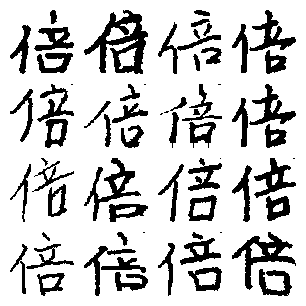 倍倍倍倍
倍倍倍倍
倍倍倍倍
倍倍倍倍